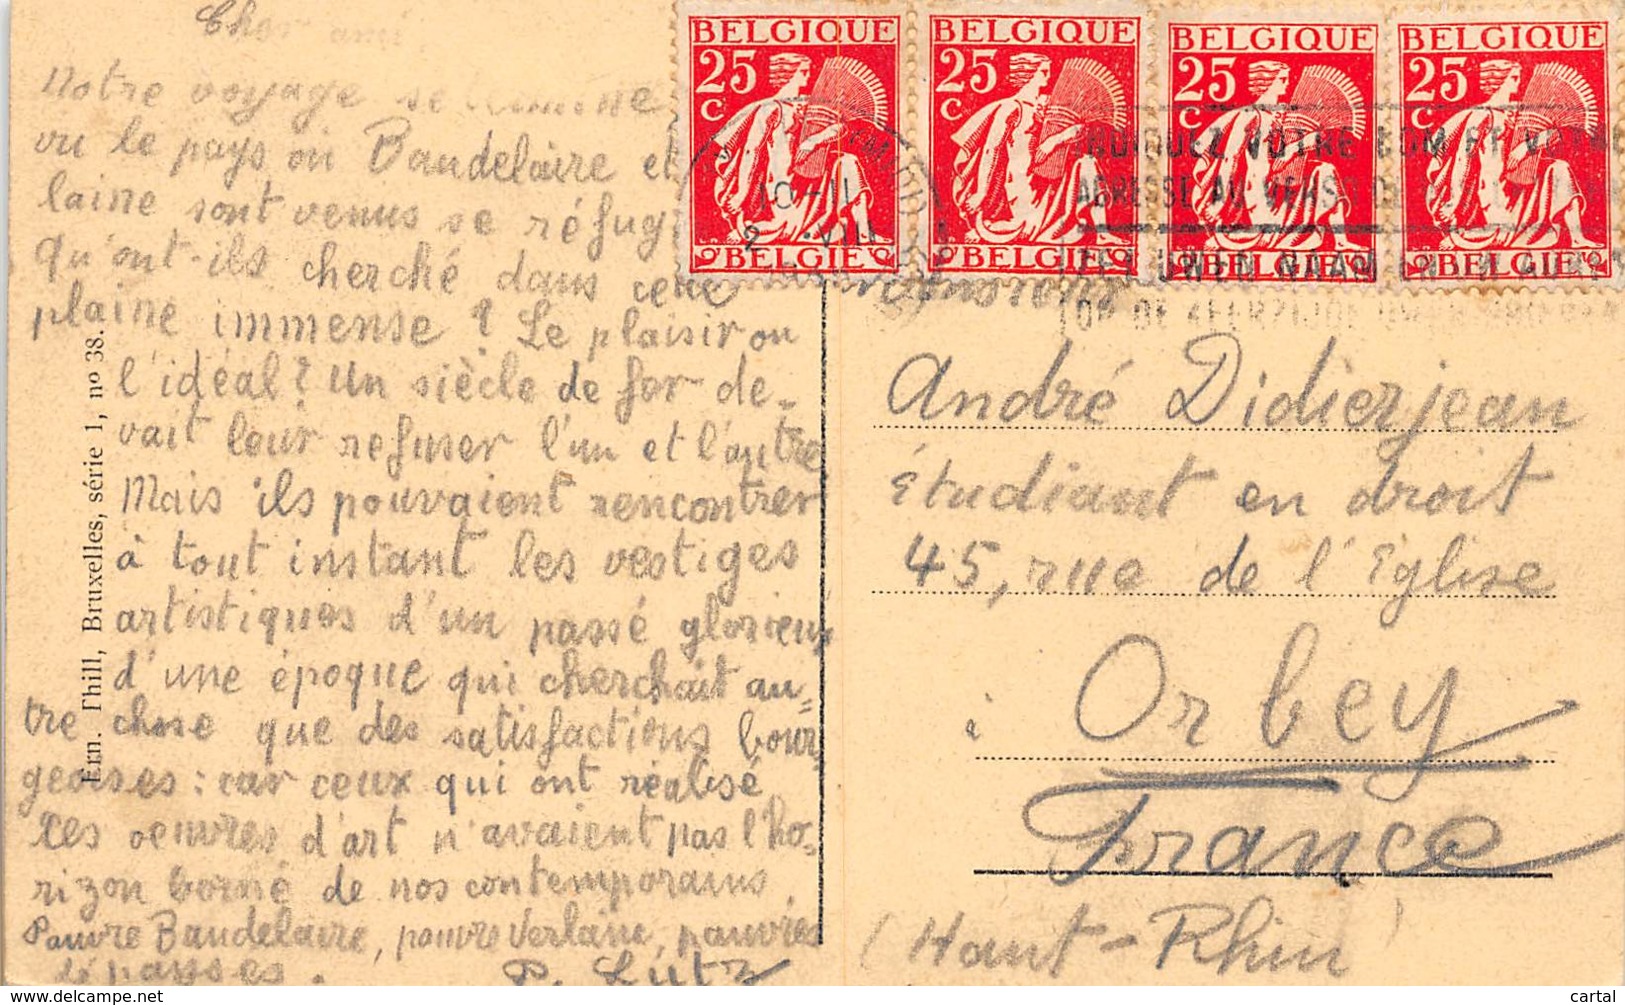 Cher ami
Notre voyage se termine
vu le pays où Baudelaire et
laine sont venus se réfugi
qu'ont-ils cherché dans cette
plaine immense ? Le plaisir ou
l'idéal ? Un siècle de fer de-
vait leur refuser l'un et l'autre
Mais ils pouvaient rencontrer
à tout instant les vestiges
artistiques d'un passé glorieux
d'une époque qui cherchait au-
tre chose que des satisfactions bour
geoises : car ceux qui ont réalisé
ces oeuvres d'art n'avaient pas l'ho-
rizon borné de nos contemporains
Pauvre Baudelaire, pauvre Verlaine, pauvres
dépaysés.
P. Lutz
Ern. Thill, Bruxelles, série 1, no 38.
BELGIQUE
25
C
BELGIE
BELGIQUE
25
C
BELGIE
BELGIQUE
25
C
BELGIE
BELGIQUE
25
C
BELGIE
10-11
2 VIII
VOTRE NOM ET VOTRE
ADRESSE AU VERSO
UWEN NAAM EN
Monsieur
André Didierjean
étudiant en droit
45, rue de l'Eglise
à Orbey
France
(Haut-Rhin)
www.delcampe.net
cartal